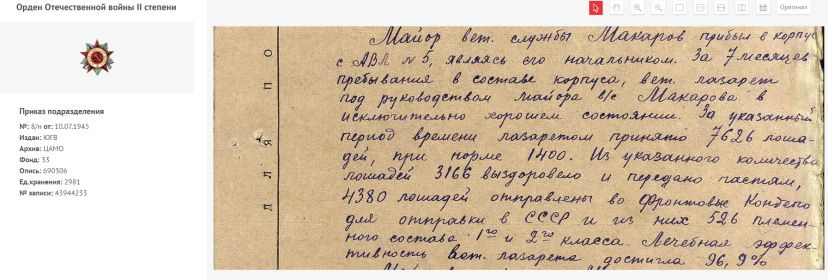 Орден Отечественной войны II степени
Приказ подразделения
№: 8/н от: 10.07.1945
Издан: ЮГВ
Архив: ЦАМО
Фонд: 33
Опись: 690306
Ед.хранения: 2981
№ записи: 43944233
Оригинал
для по
Майор вет. службы Макаров прибыл в корпус
с АВЛ №5, являясь его начальником. За 7 месяцев
пребывания в составе корпуса, вет. лазарет
под руководством майора в/с Макарова в
исключительно хорошем состоянии. За указанный
период времени лазаретом принято 7626 лоша-
дей, при норме 1400. Из указанного количества
лошадей 3166 выздоровело и передано частям,
4380 лошадей отправлены во Фронтовые Кондепо
для отправки в СССР и из них 526 племен-
ного состава 1го и 2го класса. Лечебная эффек-
тивность вет. лазарета достигла 96,9%